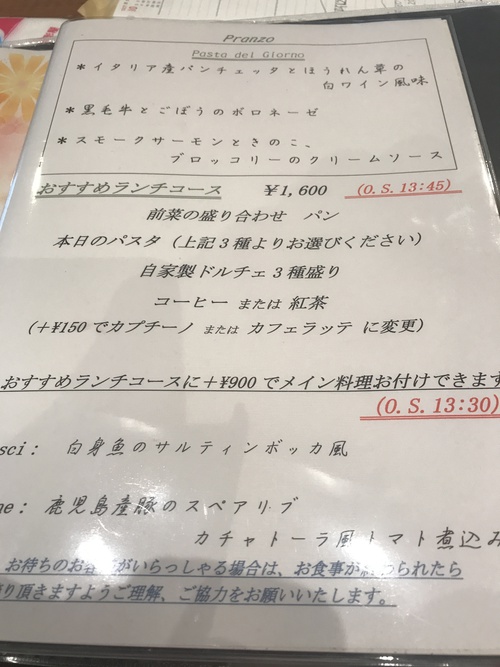 Pranzo
Pasta del Giorno
* イタリア産パンチェッタとほうれん草の
白ワイン風味
* 黒毛牛とごぼうのボロネーゼ
* スモークサーモンときのこ、
ブロッコリーのクリームソース
おすすめランチコース ¥1,600 (O.S. 13:45)
前菜の盛り合わせ パン
本日のパスタ（上記3種よりお選びください）
自家製ドルチェ3種盛り
コーヒー または 紅茶
(+¥150でカプチーノ または カフェラッテ に変更)
おすすめランチコースに+¥900でメイン料理お付けできます
(O.S. 13:30)
sci: 白身魚のサルティンボッカ風
ne: 鹿児島産豚のスペアリブ
カチャトーラ風トマト煮込み
お待ちのお客 がいらっしゃる場合は、お食事が られたら
り頂きますようご理解、ご協力をお願いいたします。